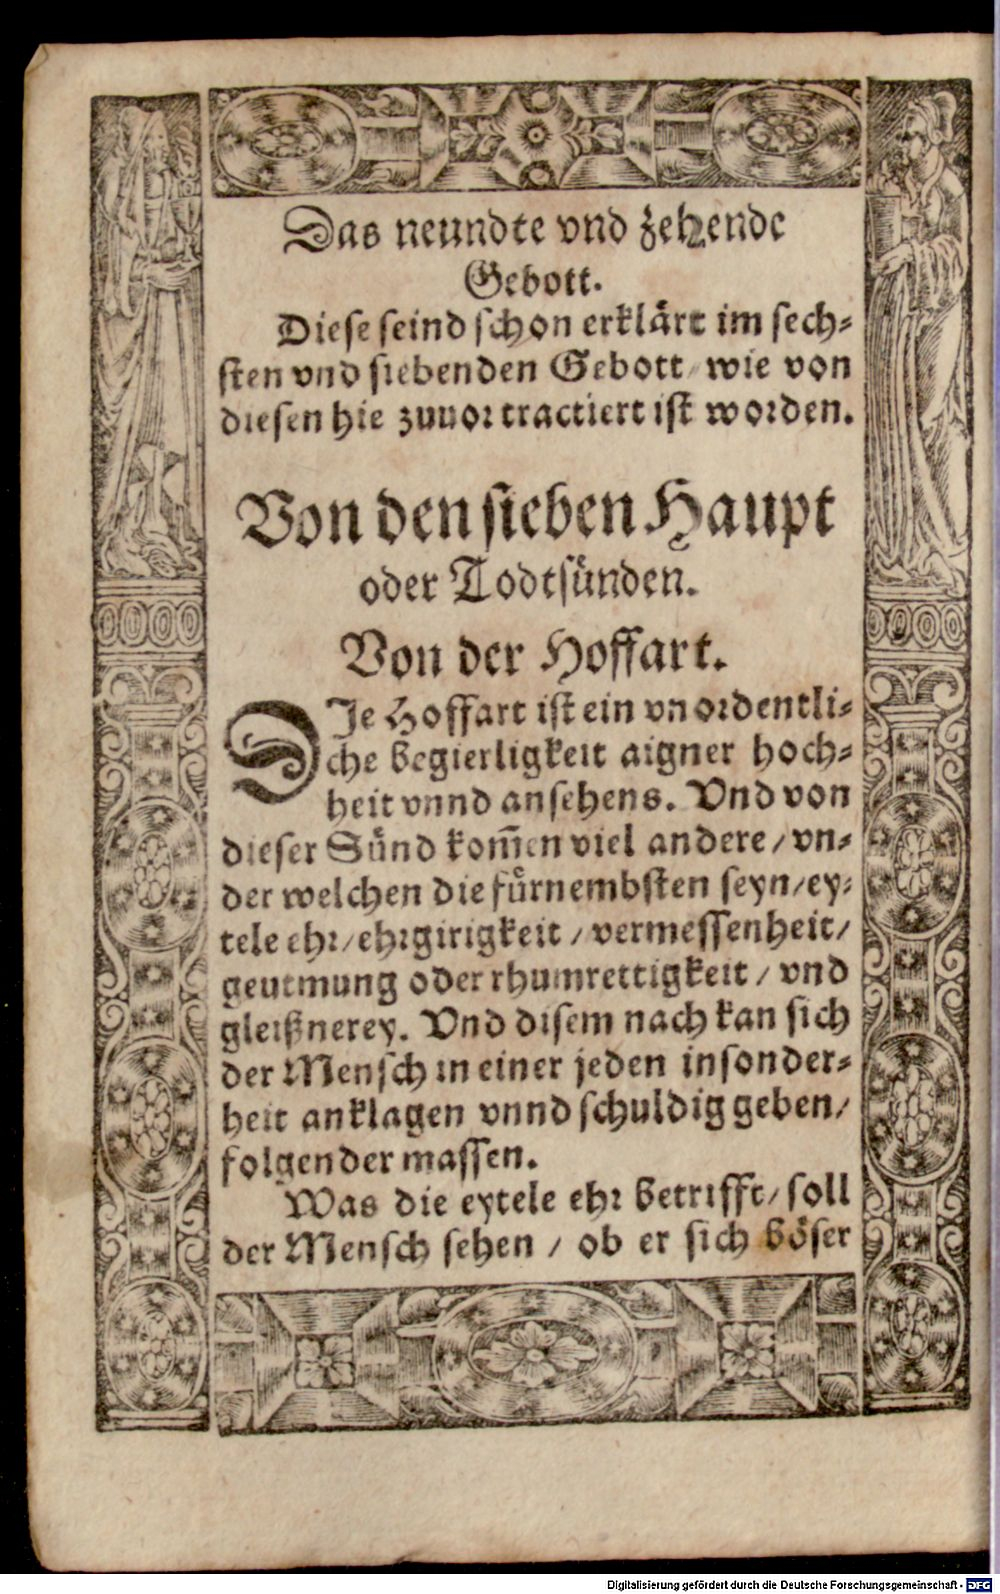 Das neundte vnd zehende
Gebott.
Diese seind schon erklärt im sech-
sten vnd siebenden Gebott / wie von
diesen hie zuuor tractiert ist worden.
Von den sieben Haupt
oder Todtsünden.
Von der Hoffart.
DIe Hoffart ist ein vnordentli-
che begierligkeit aigner hoch-
heit vnnd ansehens. Vnd von
dieser Sünd kom̃en viel andere / vn-
der welchen die fürnembsten seyn / ey-
tele ehr / ehrgirigkeit / vermessenheit /
geutmung oder rhumrettigkeit / vnd
gleißnerey. Vnd disem nach kan sich
der Mensch in einer jeden insonder-
heit anklagen vnnd schuldig geben /
folgender massen.
Was die eytele ehr betrifft / soll
der Mensch sehen / ob er sich böser
Digitalisierung gefördert durch die Deutsche Forschungsgemeinschaft - DFG